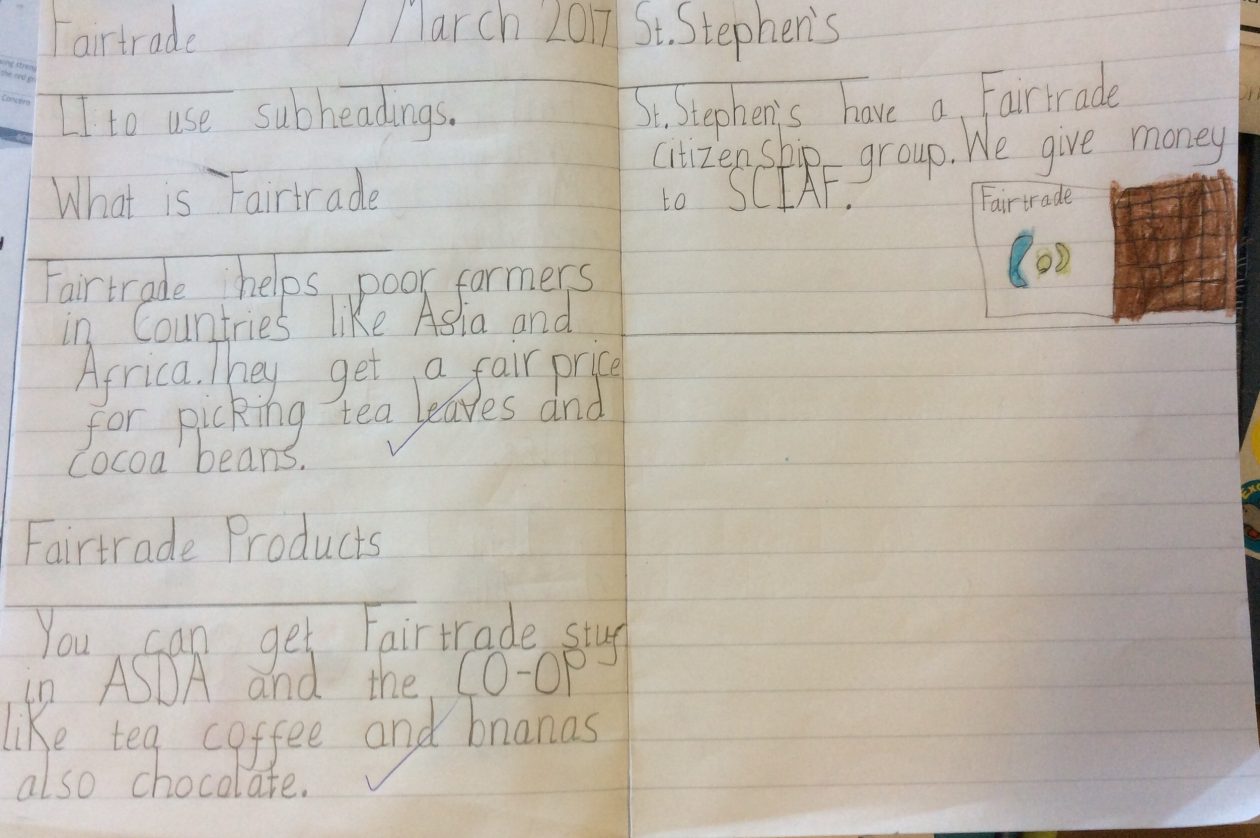 Fairtrade 1 March 2017
LI: to use subheadings.
What is Fairtrade
Fairtrade helps poor farmers
in Countries like Asia and
Africa. They get a fair price
for picking tea leaves and
cocoa beans.
Fairtrade Products
You can get Fairtrade stuf
in ASDA and the CO-OP
like tea coffee and bnanas
also chocolate.
St. Stephen's
St. Stephen's have a Fairtrade
Citizenship group. We give money
to SCIAF.
Fairtrade